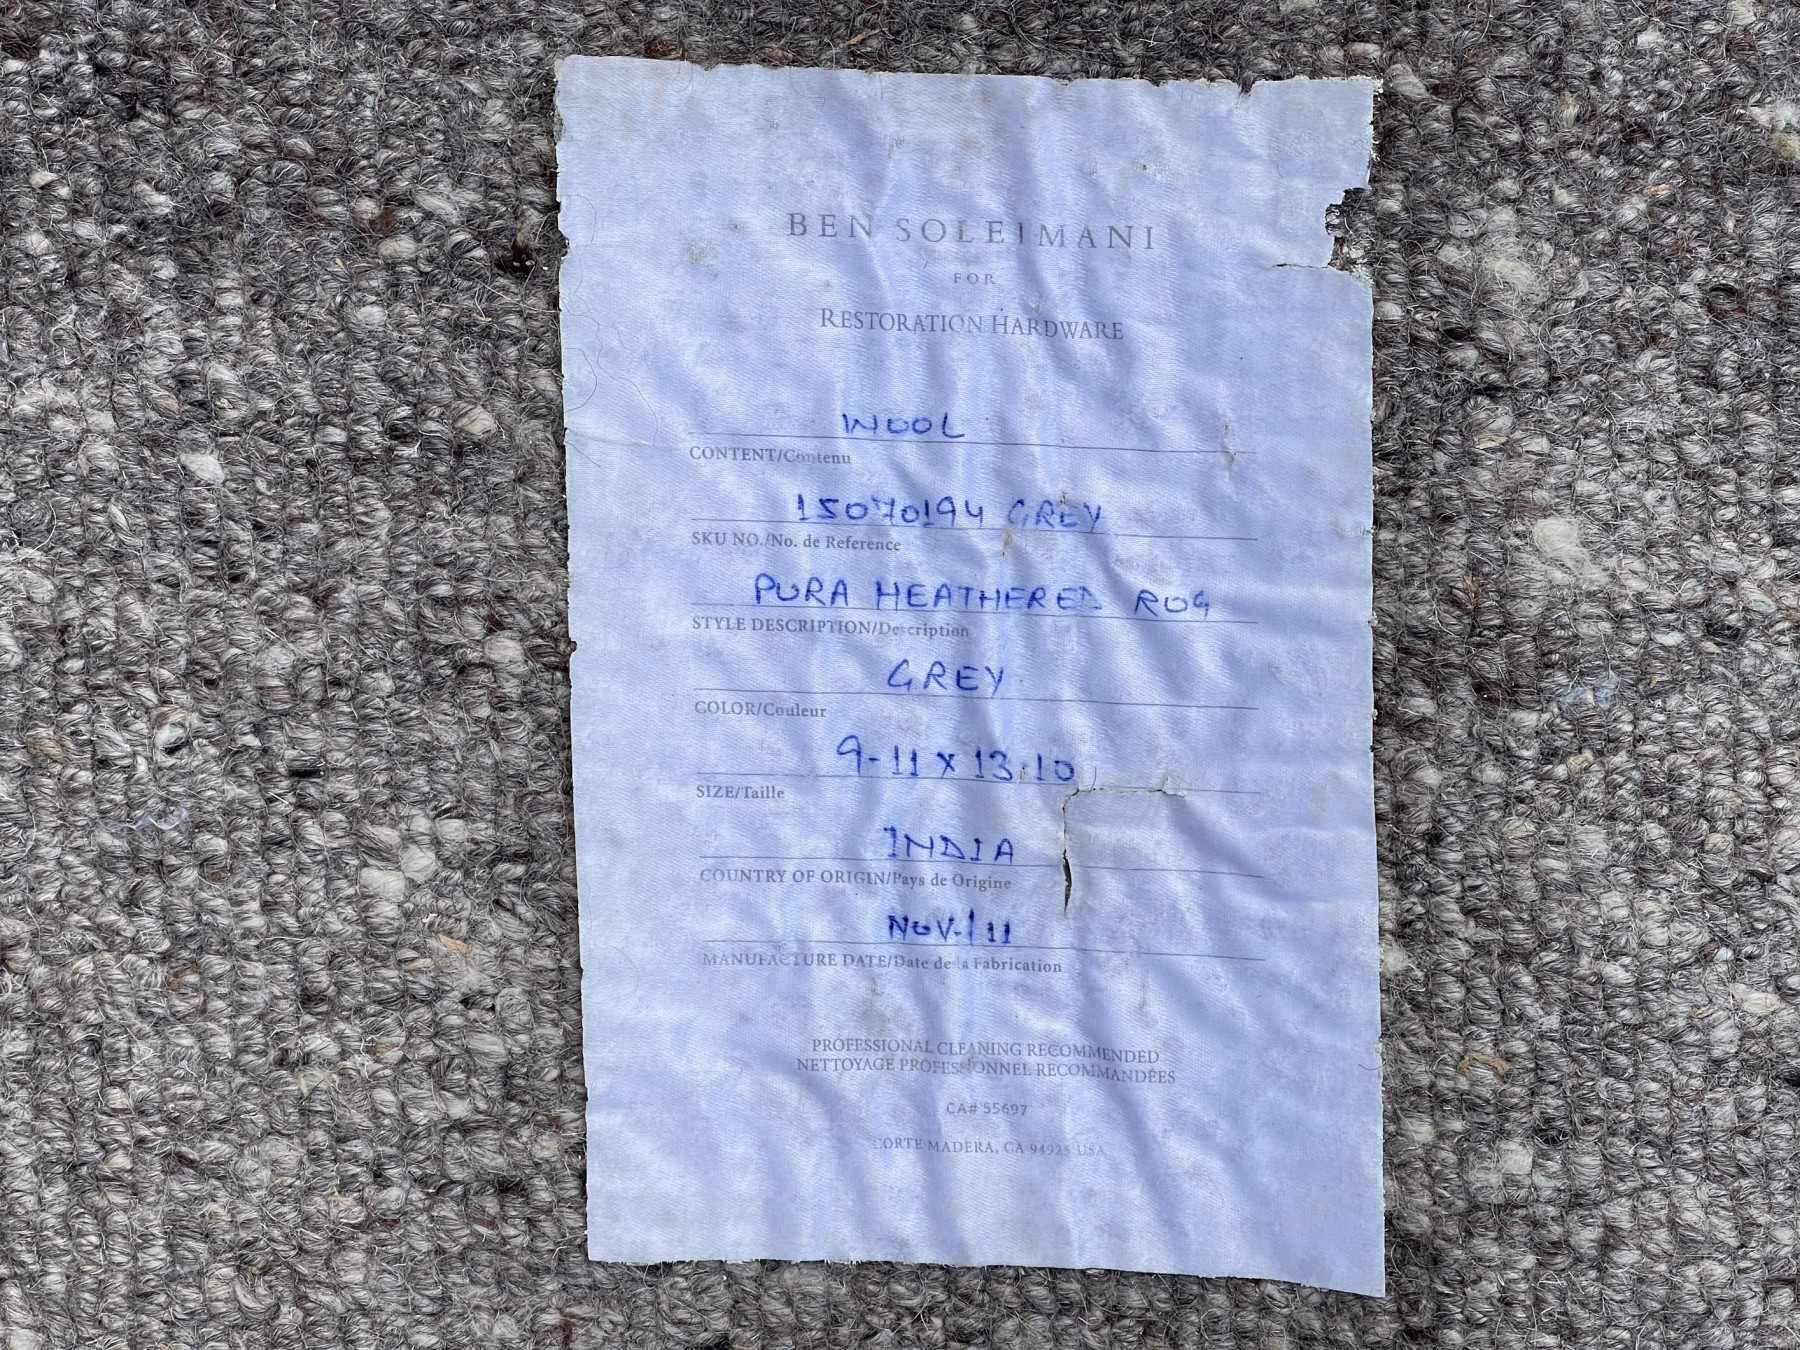 BEN SOLEIMANI
FOR
RESTORATION HARDWARE
WOOL
CONTENT/Contenu
15070194 GREY
SKU NO./No. de Reference
PURA HEATHERED RUG
STYLE DESCRIPTION/Description
GREY
COLOR/Couleur
9-11 x 13.10
SIZE/Taille
INDIA
COUNTRY OF ORIGIN/Pays de Origine
NOV-/11
MANUFACTURE DATE/Date de la Fabrication
PROFESSIONAL CLEANING RECOMMENDED
NETTOYAGE PROFESSIONNEL RECOMMANDÉES
CA# 55697
CORTE MADERA, CA 94925 USA